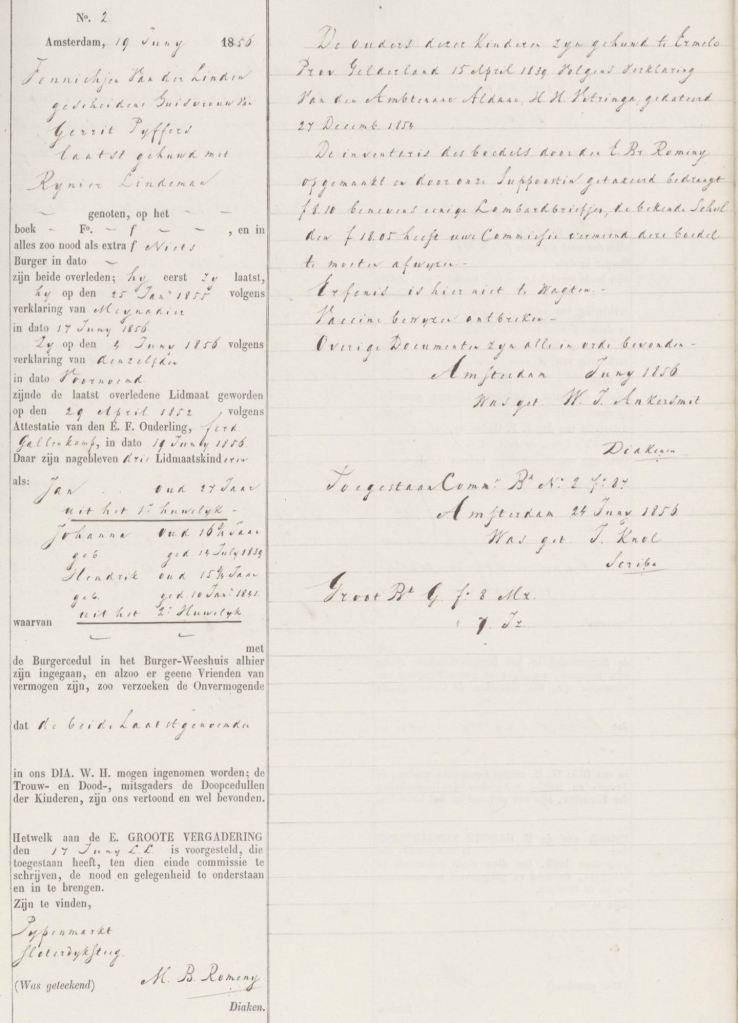 No. 2
Amsterdam, 19 Juny 1856
Jennichjen Van der Linden
gescheidene Huisvrouw Van
Gerrit Pyffers
laatst gehuwd met
Rynier Lindeman
genoten, op het
boek – Fo. – f – – , en in
alles zoo nood als extra f Niets
Burger in dato –
zijn beide overleden; hy eerst Zy laatst,
hy op den 25 Jan. 1855 volgens
verklaring van Meynadier
in dato 17 Juny 1856
Zy op den 4 Juny 1856 volgens
verklaring van denzelfden
in dato Voornoemd
zijnde de laatst overledene Lidmaat geworden
op den 29 April 1852 volgens
Attestatie van den E. F. Ouderling, ferd.
Gallenkamp, in dato 19 Juny 1856.
Daar zijn nagebleven drie Lidmaatskinderen
als:
Jan oud 27 Jaar
uit het 1e huwelyk -
Johanna oud 16 Jaar
geb ged 14 July 1839
Hendrik oud 15 Jaar
geb. ged 10 Jan. 1841
uit het 2e Huwelyk
waarvan
met
de Burgercedul in het Burger-Weeshuis alhier
zijn ingegaan, en alzoo er geene Vrienden van
vermogen zijn, zoo verzoeken de Onvermogende
dat de beide Laatstgenoemden
in ons DIA. W. H. mogen ingenomen worden; de
Trouw- en Dood-, mitsgaders de Doopcedullen
der Kinderen, zijn ons vertoond en wel bevonden.
Hetwelk aan de E. GROOTE VERGADERING
den 17 Juny LL. is voorgesteld, die
toegestaan heeft, ten dien einde commissie te
schrijven, de nood en gelegenheid te onderstaan
en in te brengen.
Zijn te vinden,
Pypenmarkt
Sloterdyksteeg
(Was geteekend) M. B. Romeny
Diaken.
De ouders dezer Kinderen zyn gehuwd te Ermelo
Prov Gelderland 15 April 1839 Volgens Verklaring
Van den Ambtenaar Aldaar, H. H. Vitringa, gedateerd
27 Decemb. 1854
De inventaris des boedels door den E Br. Romeny
opgemaakt en door onze Suppoosten getaxeerd bedraagt
f 8.10 benevens eenige Lombardbriefjes, de bekende Schul
den f 18.05 heeft uwe Commissie vermeend deze boedel
te moeten afwyzen -
Erfenis is hier niet te Wagten -
Vaccine bewyzen ontbreken -
Overige Documenten zyn alle in orde bevonden -
Amsterdam Juny 1856
Was get. W. J. Ankersmit
Diaken
Toegestaan Comm. Bk No. 2 fo. 87
Amsterdam 24 Juny 1856
Was get J. Knol
Scriba
Groot Bk G fo 8 Mr.
7 Jr.